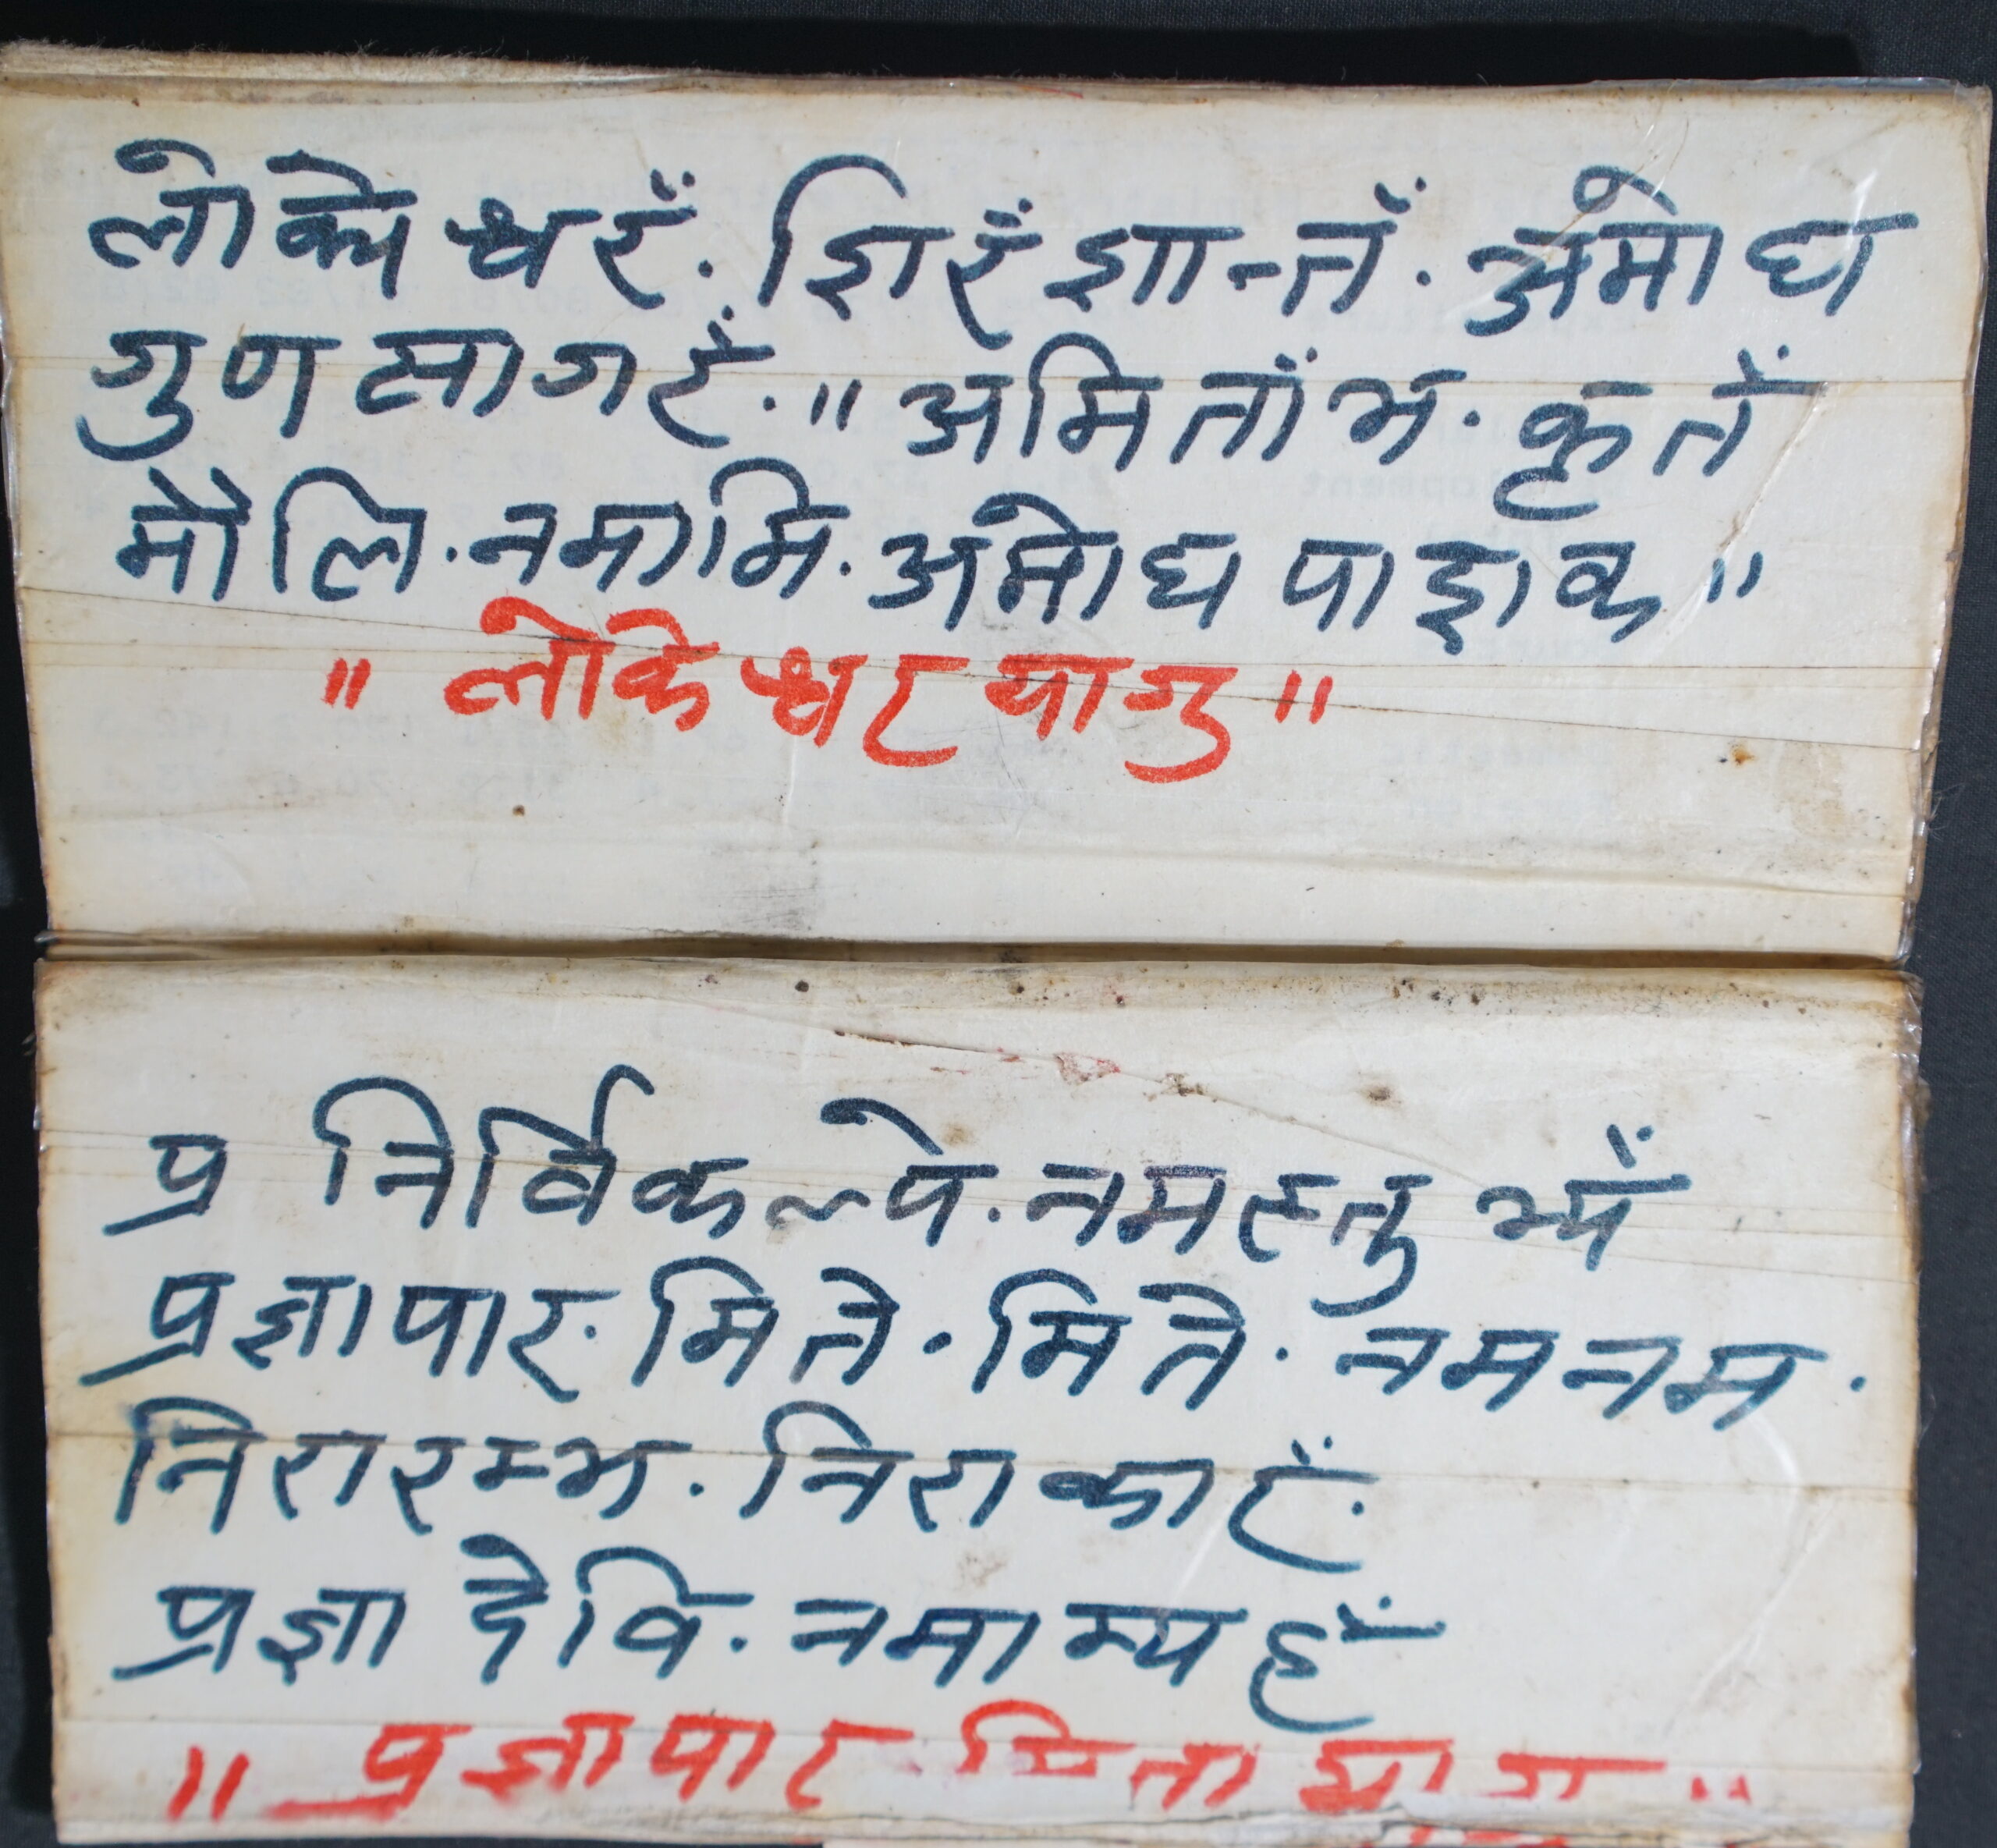 लोक्ये श्वरँ. शिरँ शान्तँ. अमोघ
गुण सागरँ. ॥ अमिताँभ. कृतँ
मौलि. नमामि. अमोघ पाशक ॥
॥ लोकेश्वर यागु ॥
प्र निर्विकल्पे. नमस्तु भ्यँ
प्रज्ञापार. मिते. मिते. नमनम.
निरारम्भ. निराकारँ.
प्रज्ञा देवि. नमाम्यहँ
॥ प्रज्ञापार मिता यागु ॥